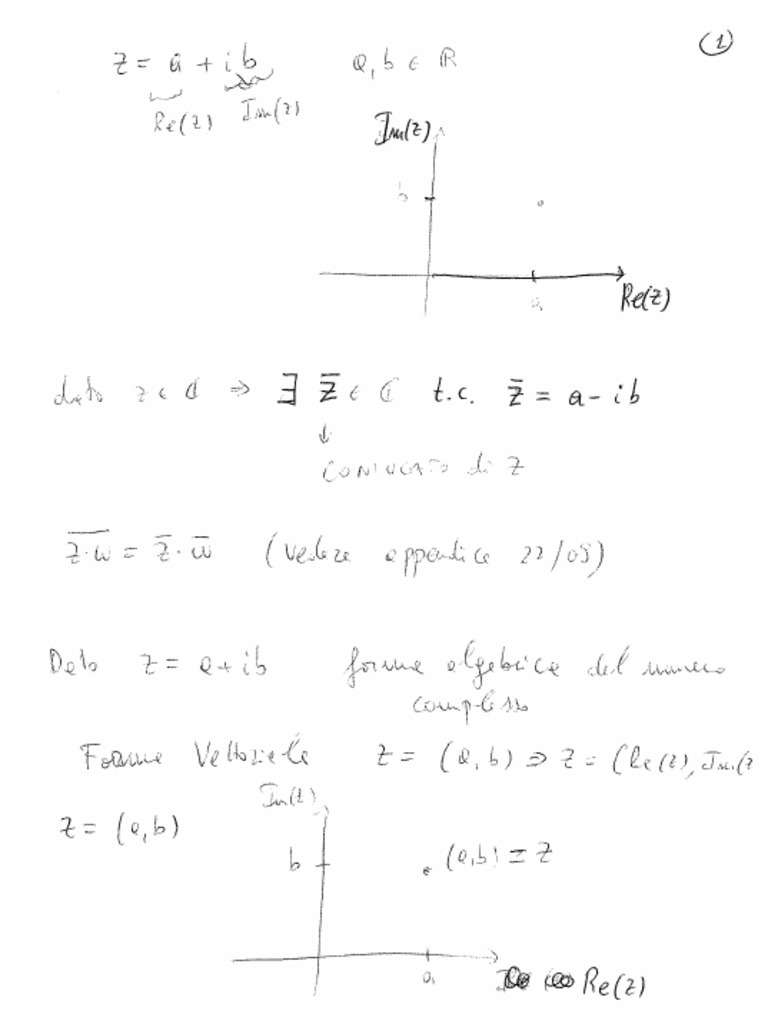 (1)
z = a + ib    a, b ∈ ℝ
Re(z)  Im(z)
Im(z)
b
a
Re(z)
dato z ∈ ℂ ⇒ ∃ z̅ ∈ ℂ t.c. z̅ = a - ib
↓
CONIUGATO di z
\overline{z·w} = z̅ · w̅  (vedere appendice 22/05)
Dato z = a + ib  forma algebrica del numero
complesso
Forma Vettoriale  z = (a, b) ⇒ z = (Re(z), Im(z
Im(z)
z = (a, b)
b
(a,b) ≡ z
a
Re(z)